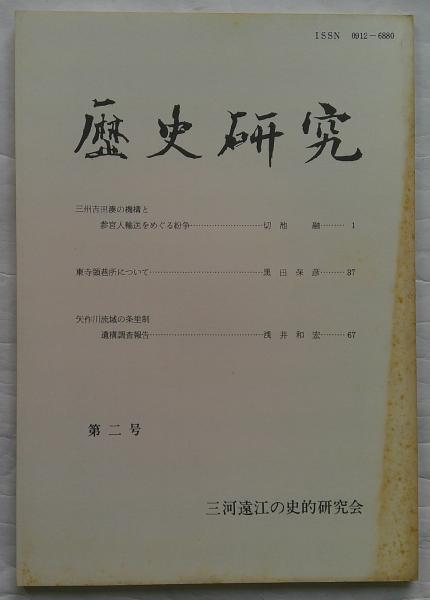 ISSN 0912-6880
歴史研究
三州吉田湊の機構と
参宮人輸送をめぐる紛争……………………切池 融………1
東寺領巷所について………………………………黒田保彦………37
矢作川流域の条里制
遺構調査報告………………………………浅井和宏………67
第二号
三河遠江の史的研究会